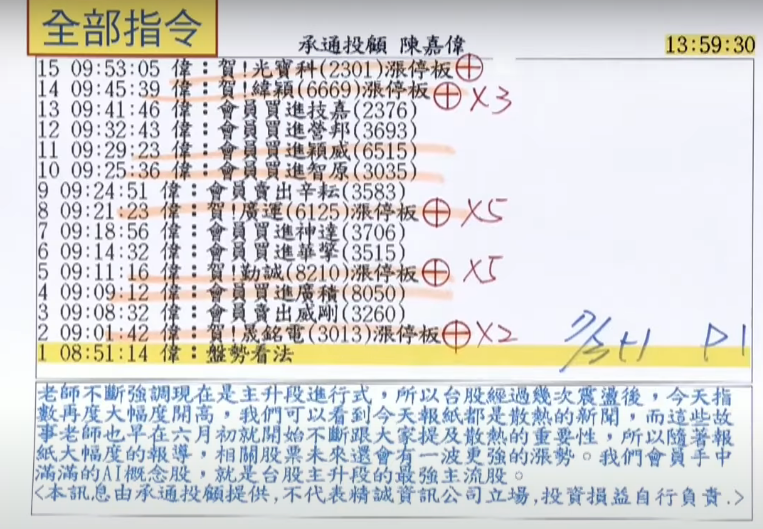 全部指令
承通投顧 陳嘉偉
13:59:30
15 09:53:05 偉：賀!光寶科(2301)漲停板
14 09:45:39 偉：賀!緯穎(6669)漲停板 X3
13 09:41:46 偉：會員買進技嘉(2376)
12 09:32:43 偉：會員買進營邦(3693)
11 09:29:23 偉：會員買進穎崴(6515)
10 09:25:36 偉：會員買進智原(3035)
9 09:24:51 偉：會員賣出辛耘(3583)
8 09:21:23 偉：賀!廣運(6125)漲停板 X5
7 09:18:56 偉：會員買進神達(3706)
6 09:14:32 偉：會員買進華擎(3515)
5 09:11:16 偉：賀!勤誠(8210)漲停板 X5
4 09:09:12 偉：會員買進廣積(8050)
3 09:08:32 偉：會員賣出威剛(3260)
2 09:01:42 偉：賀!晟銘電(3013)漲停板 X2
1 08:51:14 偉：盤勢看法
P1
老師不斷強調現在是主升段進行式，所以台股經過幾次震盪後，今天指
數再度大幅度開高，我們可以看到今天報紙都是散熱的新聞，而這些故
事老師也早在六月初就開始不斷跟大家提及散熱的重要性，所以隨著報
紙大幅度的報導，相關股票未來還會有一波更強的漲勢。我們會員手中
滿滿的AI概念股，就是台股主升段的最強主流股。
<本訊息由承通投顧提供,不代表精誠資訊公司立場,投資損益自行負責.>